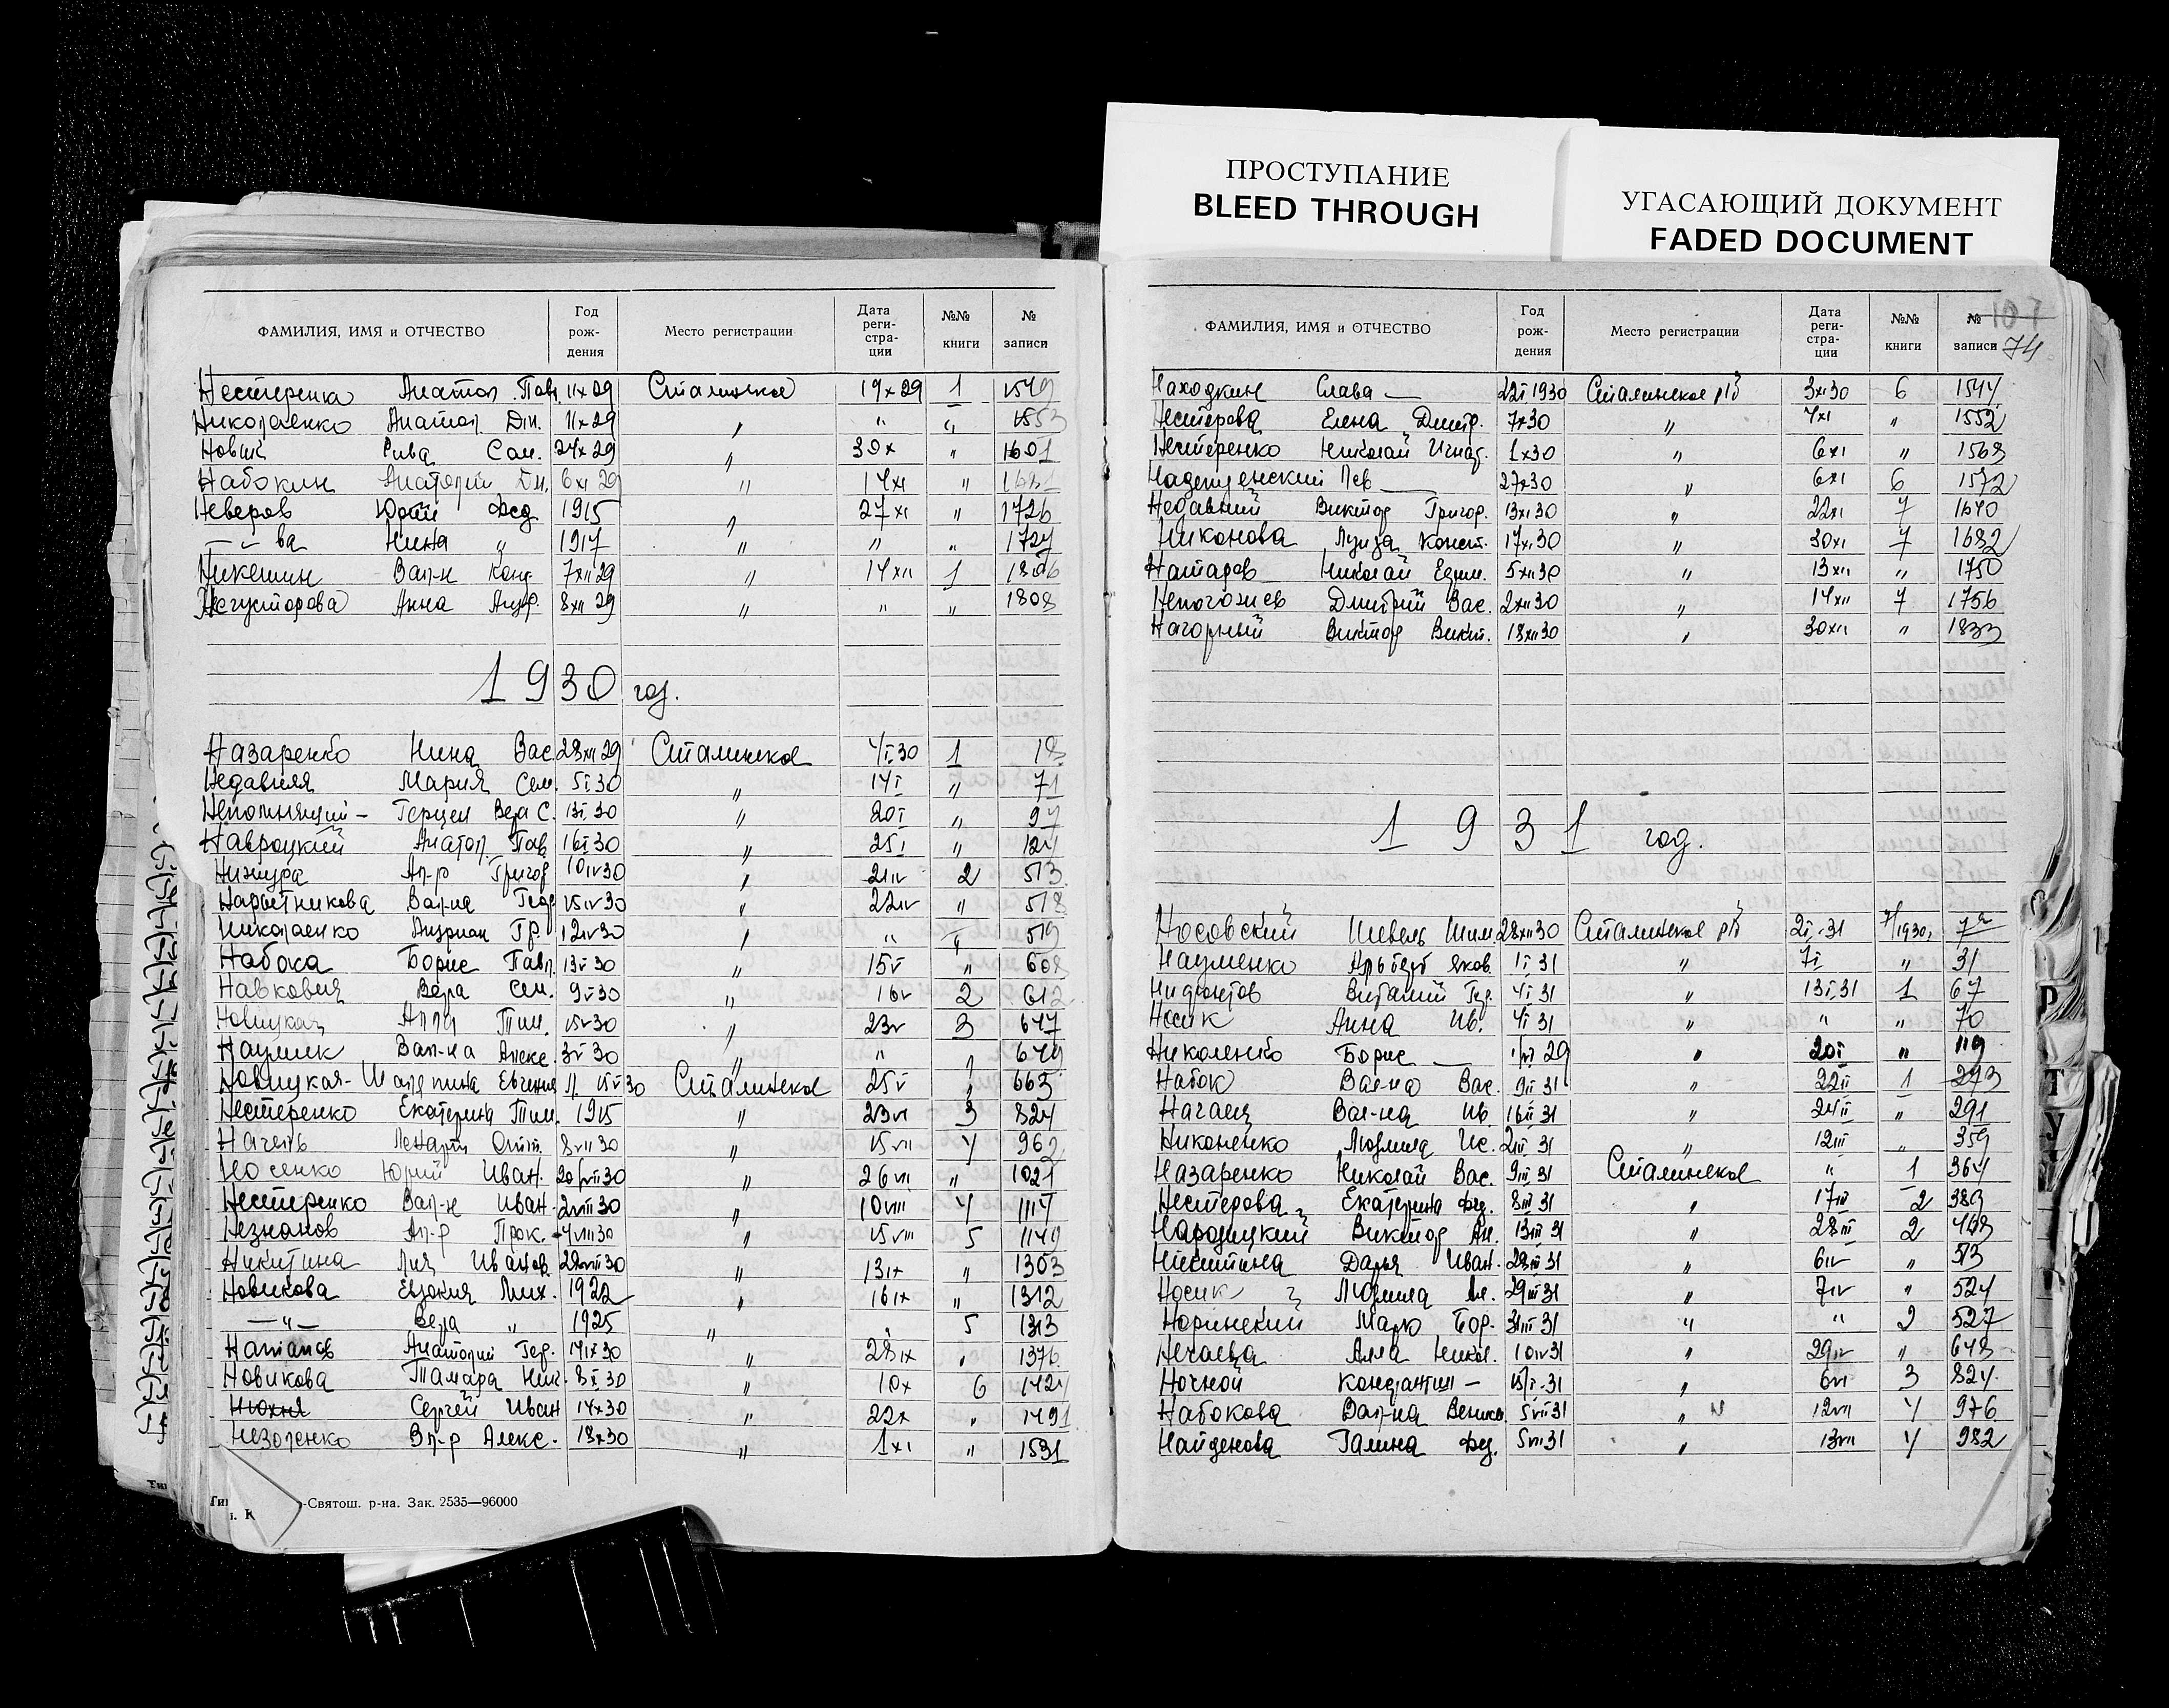 ПРОСТУПАНИЕ
BLEED THROUGH
УГАСАЮЩИЙ ДОКУМЕНТ
FADED DOCUMENT
ФАМИЛИЯ, ИМЯ и ОТЧЕСТВО Год рож- дения Место регистрации Дата реги- стра- ции №№ книги № записи
Нестеренко Анатол. Пав. 11 х 29 Сталинское 19 х 29 1 1549
Николаенко Анатол Дм. 11 х 29 " " " 1553
Новик Рива Сам. 24 х 29 " 30 х " 1601
Набокин Анатолий Дм. 6 xi 29 " 14 xi "
Неверов Юрий Фед 1915 " 27 xi " 1726
— " — ва Нина " 1917 " " " 1727
Никешин Вал-н Конс. 7 xii 29 " 14 xii 1 1806
Анна Андр. 8 xii 29 " " " 1808
1930 год.
Назаренко Нина Вас. 28 xii 29 Сталинское 4 I 30 1 18
Недавняя Мария Сем. 5 I 30 " 14 I " 71
Непомнящий - Герцен Вера С. 13 I 30 " 20 I " 97
Навроцкий Анатол. Пав. 16 I 30 " 25 I " 124
Ал-р Григор 10 iv 30 " 21 iv 2 513
Вал-на Геор. 15 iv 30 " 22 iv " 518
Николаенко Андриан Гр. 12 iv 30 " " " 519
Набока Борис Павл. 13 v 30 " 15 v " 608
Вера Сем. 9 v 30 " 16 v 2 612
Новицкая Алла Тим. 15 v 30 " 23 v 3 647
Наумик Вал-на Алекс. 3 v 30 " " " 649
Новицкая - Евгения 15 v 30 Сталинское 25 v " 663
Нестеренко Екатерина Тим. 1915 " 23 vi 3 824
8 vii 30 " 15 vii 4 962
Носенко Юрий Иван. 20/vii 30 " 26 vii " 1021
Нестеренко Вал-н Иван. 2 viii 30 " 10 viii 4 1117
Незнанов Ал-р Прок. 4 viii 30 " 15 viii 5 1149
Никитина Лид Иванов. 28 viii 30 " 13 ix " 1303
Новикова Евдокия Мих. 1922 " 16 ix " 1312
— " — Вера " 1925 " " 5 1313
Натанов Анатолий Геор. 14 ix 30 " 28 ix " 1376
Новикова Тамара Ник. 8 x 30 " 10 x 6 1424
Сергей Иван 14 x 30 " 22 x " 1491
Вл-р Алекс. 18 x 30 " 1 xi " 1531
-Святош. р-на. Зак. 2535—96000
ФАМИЛИЯ, ИМЯ и ОТЧЕСТВО Год рож- дения Место регистрации Дата реги- стра- ции №№ книги № записи 74
Находкин Слава — 22 I 1930 Сталинское р/б 3 xi 30 6 1547
Нестерова Елена Дмитр. 7 x 30 " 4 xi " 1552
Нестеренко Николай Игнат. 1 x 30 " 6 xi " 1568
Лев — 27 x 30 " 6 xi 6 1572
Недавний Виктор Григор. 13 xi 30 " 22 xi 7 1640
Никонова Луиза Конст. 17 xi 30 " 30 xi 7 1682
Натаров Николай Ефим. 5 xii 30 " 13 xii " 1750
Непогожев Дмитрий Вас. 2 xii 30 " 14 xii 7 1756
Нагорный Виктор Викт. 18 xii 30 " 30 xii " 1833
1931 год.
Носовский Шевель Шим. 28 xii 30 Сталинское р/б 2 I 31 7/1930 7а
Науменко Альберт Яков. 1 I 31 " 7 I " 31
Нифонтов Виталий Гер. 4 I 31 " 13 I 31 1 67
Носик Анна Ив. 4 I 31 " " " 70
Николенко Борис — 29 " 20 I " 119
Набок Вал-на Вас. 9 II 31 " 22 II 1 273
Вал-на Ив. 16 II 31 " 24 II " 291
Никоненко Людмила Ис. 2 III 31 " 12 III " 359
Назаренко Николай Вас. 9 III 31 Сталинское " 1 364
Нестерова Екатерина Фед. 8 III 31 " 17 III 2 389
Народицкий Виктор Ан. 13 III 31 " 28 III 2 463
Никитина Дарья Иван. 28 III 31 " 6 iv " 513
Носик Людмила 29 III 31 " 7 iv " 524
Норинский Марк Бор. 31 III 31 " " 2 527
Нечаева Алла Никол. 10 iv 31 " 29 iv " 648
Ночной Константин — 31 " 6 vi 3 824
Набокова Вал-на Вениам. 5 vii 31 " 12 vii 4 976
Найденова Галина Фед. 5 vii 31 " 13 vii 4 982